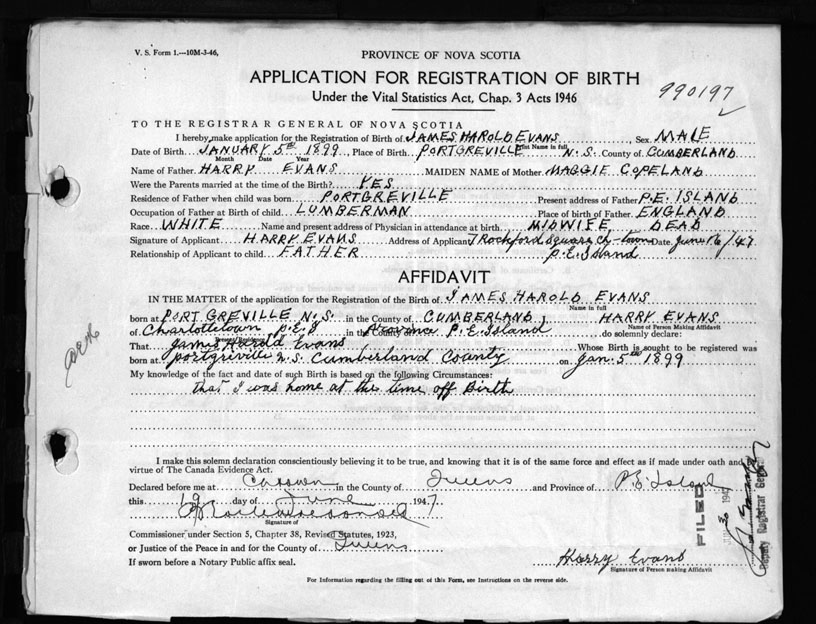 V. S. Form 1.—10M-3-46,
PROVINCE OF NOVA SCOTIA
APPLICATION FOR REGISTRATION OF BIRTH
990197
Under the Vital Statistics Act, Chap. 3 Acts 1946
TO THE REGISTRAR GENERAL OF NOVA SCOTIA
I hereby make application for the Registration of Birth of JAMES HAROLD EVANS, Sex MALE
Print Name in full
Date of Birth JANUARY 5TH 1899, Place of Birth PORTGREVILLE N.S. County of CUMBERLAND
Month Date Year
Name of Father HARRY EVANS MAIDEN NAME of Mother MAGGIE COPELAND
Were the Parents married at the time of the Birth? YES
Residence of Father when child was born PORTGREVILLE Present address of Father P.E. ISLAND
Occupation of Father at Birth of child LUMBERMAN Place of birth of Father ENGLAND
Race WHITE Name and present address of Physician in attendance at birth MIDWIFE DEAD
Signature of Applicant HARRY EVANS Address of Applicant 7 Rockford Square Ch-town Date June 16/47
Relationship of Applicant to child FATHER P.E. Island
AFFIDAVIT
IN THE MATTER of the application for the Registration of the Birth of JAMES HAROLD EVANS
Name in full
born at PORT GREVILLE N.S. in the County of CUMBERLAND HARRY EVANS
Name of Person Making Affidavit
of Charlottetown P.E.I in the Province P.E. Island do solemnly declare:
That James Harold Evans Whose Birth is sought to be registered was
born at portgreville N.S. Cumberland County on Jan. 5th 1899
My knowledge of the fact and date of such Birth is based on the following Circumstances:
that I was home at the time off Birth
I make this solemn declaration conscientiously believing it to be true, and knowing that it is of the same force and effect as if made under oath and
virtue of The Canada Evidence Act.
Declared before me at in the County of Queens and Province of P.E. Island
this 19 day of June 1947
Signature of
Commissioner under Section 5, Chapter 38, Revised Statutes, 1923,
or Justice of the Peace in and for the County of Queens
If sworn before a Notary Public affix seal.
Harry Evans
Signature of Person making Affidavit
FILED
Deputy Registrar General
For Information regarding the filling out of this Form, see Instructions on the reverse side.